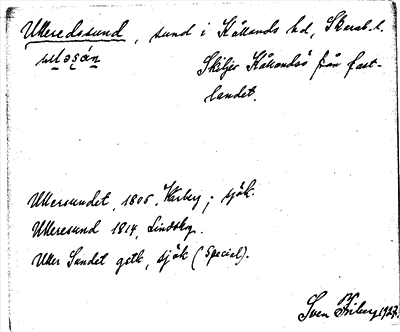 Ulleredssund, sund i Kållands hd, Skarab. l.
Skiljer Kållandsö från fast-
landet.
Ullersundet, 1805, Warberg; sjök.
Ulleresund 1814,
Uller Sundet gstk, sjök (Special).
Sven Friberg 1927.